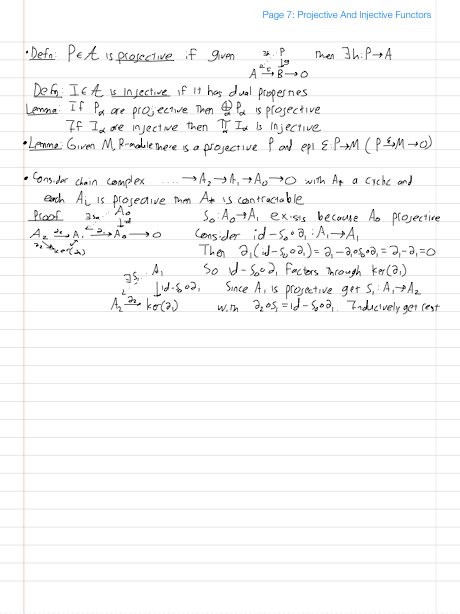 Page 7: Projective And Injective Functors
• Defn: P∈A is projective if given ∃h P Then ∃h: P→A
↓g
A →ε B → 0
Defn: I∈A is injective if it has dual properties
Lemma: If Pα are projective then ⊕α Pα is projective
If Iα are injective then ∏α Iα is injective
• Lemma: Given M, R-module there is a projective P and epi ε: P→M ( P →ε M → 0)
• Consider chain complex .... → A₂ → A₁ → A₀ → 0 with A* acyclic and
each Ai is projective then A* is contractable
Proof ∃s₀ A₀ S₀: A₀→A₁ exists because A₀ projective
↓id
A₂ →∂₂ A₁ →∂₁ A₀ → 0 Consider id - S₀∘∂₁ : A₁→A₁
∂₂ ker(∂₁) Then ∂₁(id - S₀∘∂₁) = ∂₁ - ∂₁∘S₀∘∂₁ = ∂₁ - ∂₁ = 0
So id - S₀∘∂₁ factors through ker(∂₁)
∃S₁ A₁ Since A₁ is projective get S₁: A₁→A₂
↓id - S₀∘∂₁
A₂ →∂₂ ker(∂₁) with ∂₂∘S₁ = id - S₀∘∂₁. Inductively get rest